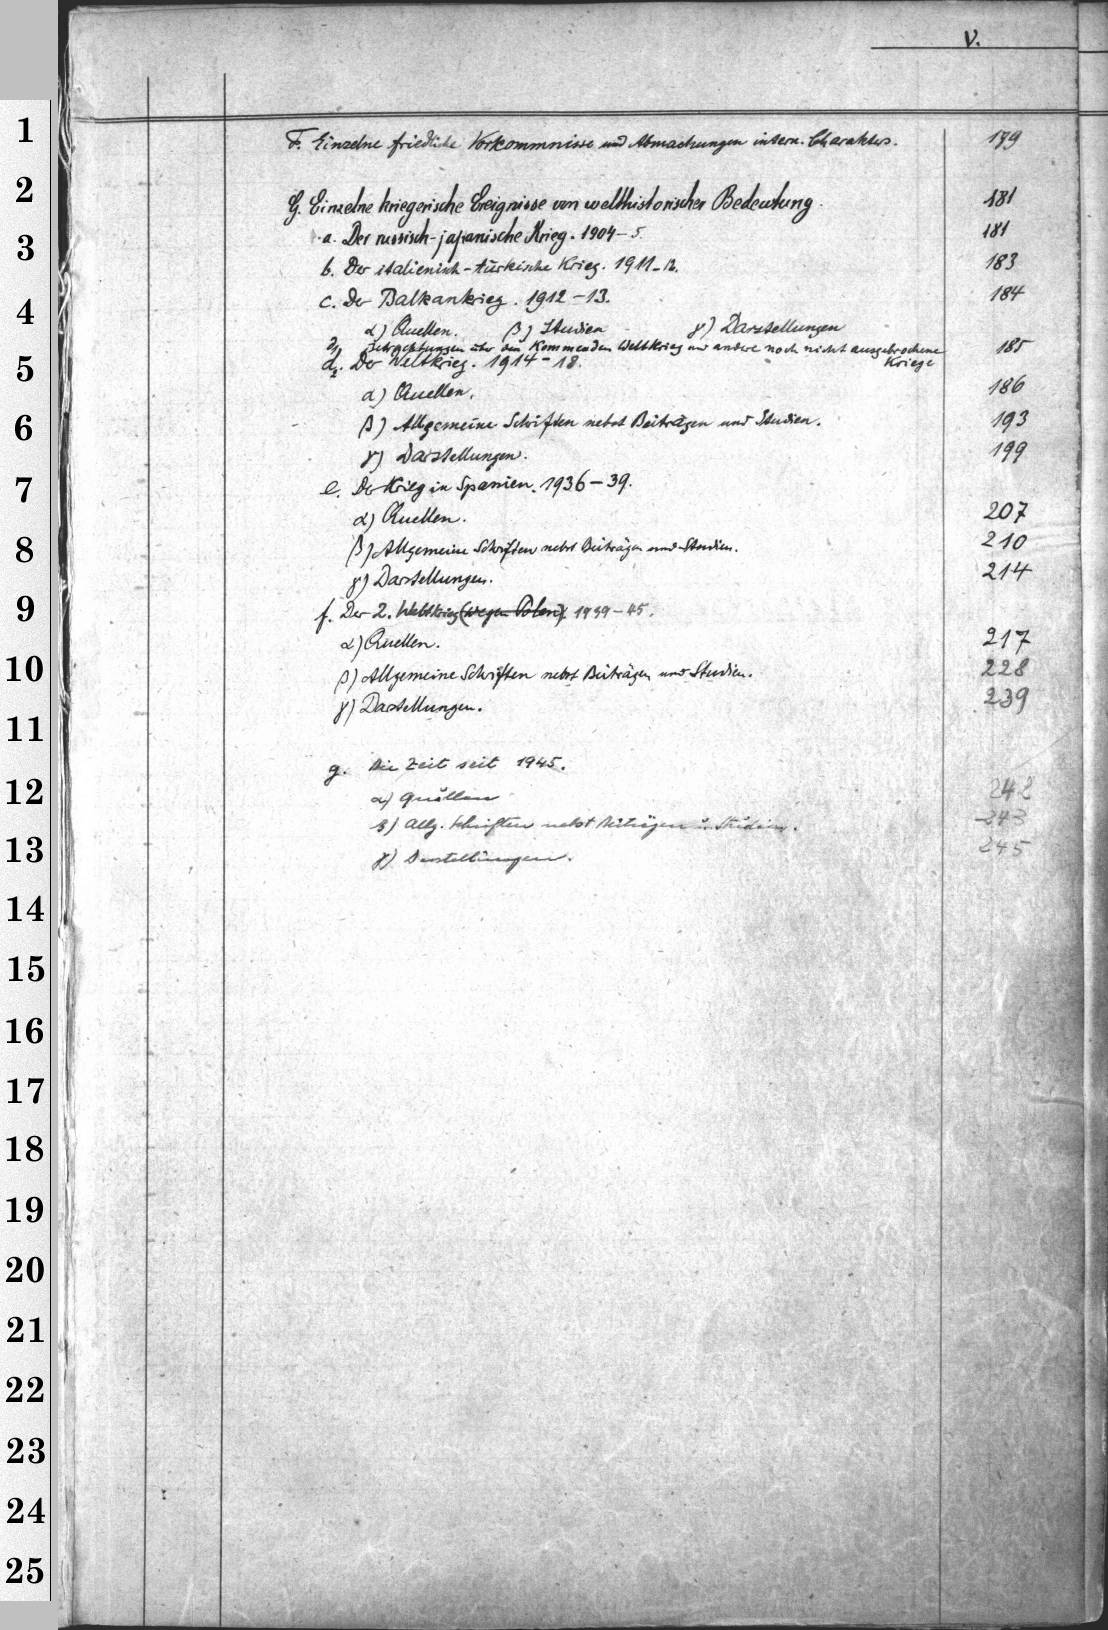 V.
F. Einzelne friedliche Vorkommnisse und Abmachungen intern. Charakters. 179
G. Einzelne kriegerische Ereignisse von welthistorischer Bedeutung. 181
a. Der russisch-japanische Krieg. 1904-5. 181
b. Der italienisch-türkische Krieg. 1911-12. 183
c. Der Balkankrieg. 1912-13. 184
α) Quellen. β) Studien γ) Darstellungen
d1 Betrachtungen über den Kommenden Weltkrieg und andere noch nicht ausgebrochene Kriege 185
d2. Der Weltkrieg. 1914-18.
α) Quellen. 186
β) Allgemeine Schriften nebst Beiträgen und Studien. 193
γ) Darstellungen. 199
e. Der Krieg in Spanien. 1936-39.
α) Quellen. 207
β) Allgemeine Schriften nebst Beiträgen und Studien. 210
γ) Darstellungen. 214
f. Der 2. Weltkrieg (wegen Polen). 1939-45.
α) Quellen. 217
β) Allgemeine Schriften nebst Beiträgen und Studien. 228
γ) Darstellungen. 239
g. Die Zeit seit 1945.
α) Quellen 242
β) Allg. Schriften nebst Beiträgen u. Studien. 243
γ) Darstellungen. 245
1
2
3
4
5
6
7
8
9
10
11
12
13
14
15
16
17
18
19
20
21
22
23
24
25